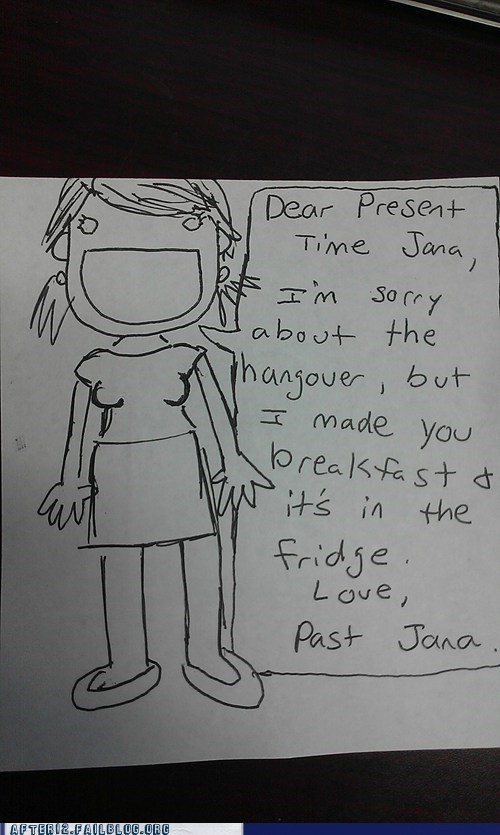 Dear Present
Time Jana,
I'm sorry
about the
hangover, but
I made you
breakfast &
it's in the
fridge.
Love,
Past Jana.
AFTER12.FAILBLOG.ORG